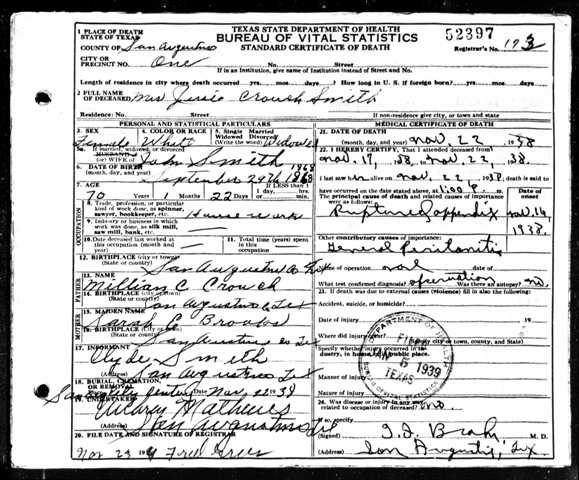 TEXAS STATE DEPARTMENT OF HEALTH
BUREAU OF VITAL STATISTICS
STANDARD CERTIFICATE OF DEATH
52397
Registrar's No. 173
1 PLACE OF DEATH
STATE OF TEXAS
COUNTY OF San Augustine
CITY OR
PRECINCT NO. One No. Street
If in an Institution, give name of Institution instead of Street and No.
Length of residence in city where death occurred yrs. mos. days. How long in U. S. if foreign born? yrs. mos. days
2 FULL NAME
OF DECEASED Mrs Crouch Smith
Residence: No. Street If non-residence give city, or town and state
PERSONAL AND STATISTICAL PARTICULARS
3. SEX 4. COLOR OR RACE 5. Single Married
Widowed Divorced
(Write the word)
Female White Widowed
5a. If married, widowed or divorced
HUSBAND of
(or) WIFE of Smith
6. DATE OF BIRTH
(month, day, and year) September 29th 1868
7. AGE If LESS than 1
70 Years 1 Months 22 Days day, hrs.
or min.
OCCUPATION
8. Trade, profession, or particular
kind of work done, as spinner,
sawyer, bookkeeper, etc. House work
9. Industry or business in which
work was done, as silk mill,
saw mill, bank, etc.
10. Date deceased last worked at
this occupation (month and
year)
11. Total time (years)
spent in this
occupation
12. BIRTHPLACE (city or town)
(State or country) San Augustine Co Tex
FATHER
13. NAME
William C Crouch
14. BIRTHPLACE (City or town)
(State or country) San Augustine Co Tex
MOTHER
15. MAIDEN NAME
Sarah E Brooks
16. BIRTHPLACE (City or town)
(State or country) San Augustine Co Tex
17. INFORMANT
Clyde Smith
(Address) San Augustine Tex
18. BURIAL, CREMATION,
OR REMOVAL
Date Nov 22 38
19. UNDERTAKER
Mathews
(Address) San Augustine Tex
20. FILE DATE AND SIGNATURE OF REGISTRAR
Nov 23 19
MEDICAL CERTIFICATE OF DEATH
21. DATE OF DEATH
(month, day, and year) Nov 22 1938
22. I HEREBY CERTIFY, That I attended deceased from
Nov. 17, 38, Nov. 22, 38.
I last saw alive on Nov. 22 1938. Death is said to have
occurred on the date stated above at 1:00 P. m.
The principal cause of death and related causes of importance
were as follows:
Date of
onset
Ruptured appendix Nov. 14,
1938.
Other contributory causes of importance:
General Peritonitis
Name of operation none Date of
What test confirmed diagnosis? operation Was there an autopsy? no.
23. If death was due to external causes (violence) fill in also the following:
Accident, suicide, or homicide?
Date of injury 19
Where did injury occur?
(Specify city or town, county, and state)
Specify whether injury occurred in industry, in home, or in public place.
Manner of injury
Nature of injury
DEPARTMENT OF HEALTH
FILED
5 1939
TEXAS
BUREAU OF VITAL STATISTICS
24. Was disease or injury in any way
related to occupation of deceased? no.
If so, specify
(Signed) M. D.
(Address) San Augustine, Tex